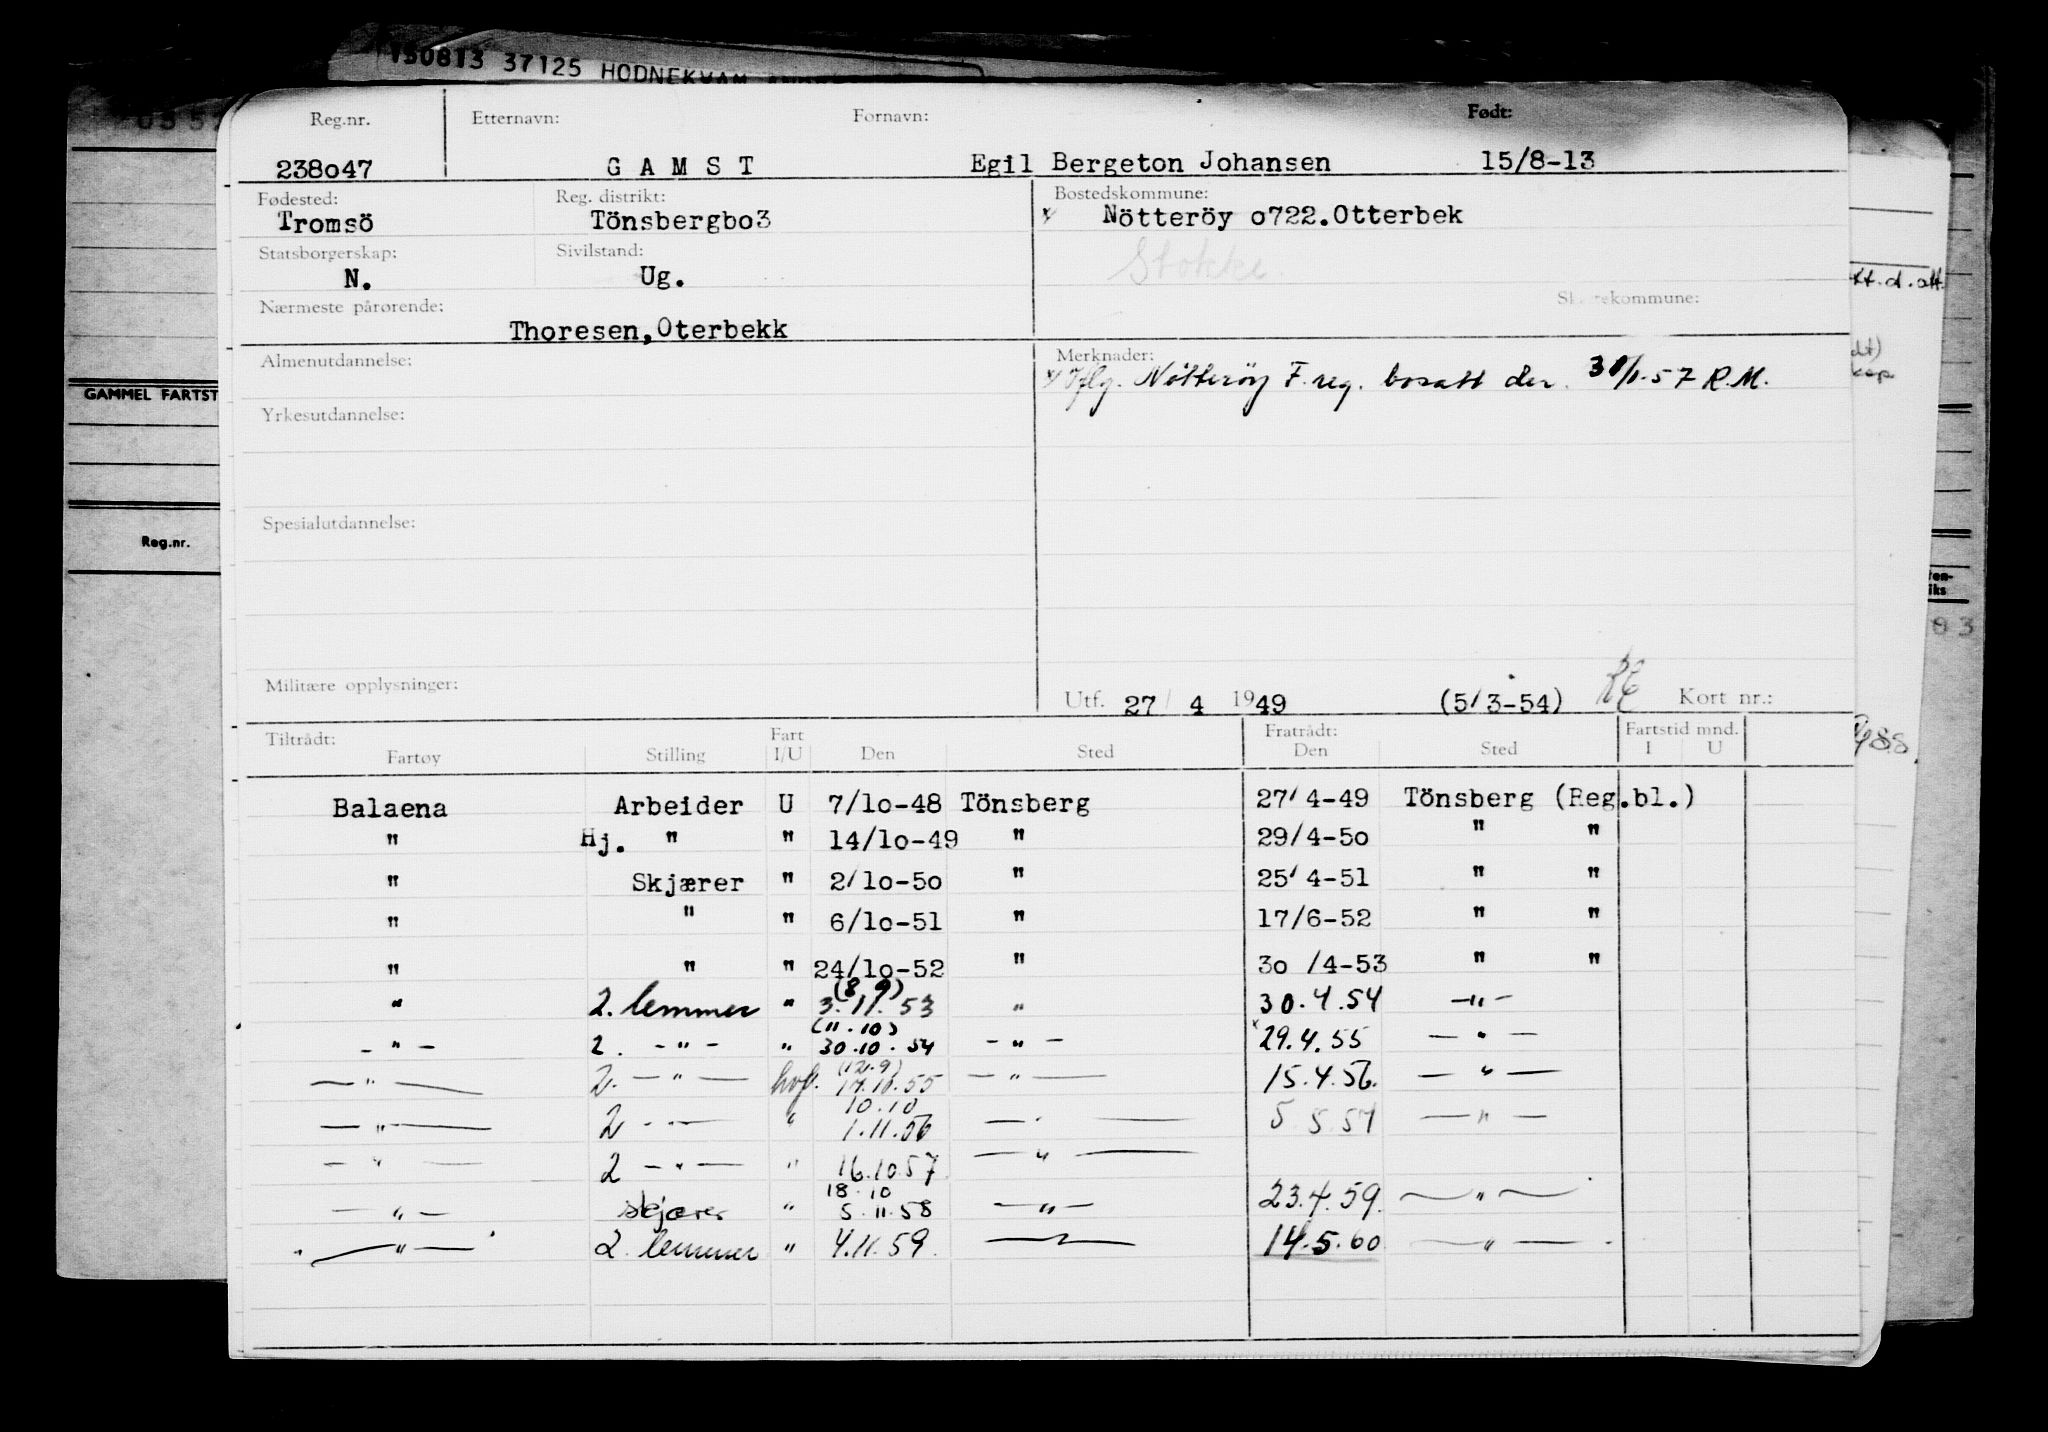 150813 37125 HODNEKVAM
Reg.nr. Etternavn: Fornavn: Født:
238o47 G A M S T Egil Bergeton Johansen 15/8-13
Fødested: Reg. distrikt: Bostedskommune:
Tromsö Tönsbergbo3 x Nötteröy o722.Otterbek
Stokke.
Statsborgerskap: Sivilstand:
N. Ug.
Nærmeste pårørende: Skattekommune:
Thoresen,Oterbekk
Almenutdannelse: Merknader:
x/ Iflg. Nötteröy F.reg. bosatt der. 31/1-57 R.M.
Yrkesutdannelse:
Spesialutdannelse:
Militære opplysninger: Utf. 27/ 4 1949 (5/3-54) RE Kort nr.:
Tiltrådt: Fratrådt: Fartstid mnd.
Fartøy Stilling Fart I/U Den Sted Den Sted I U
Balaena Arbeider U 7/1o-48 Tönsberg 27/4-49 Tönsberg (Reg.bl.)
" Hj. " " 14/1o-49 " 29/4-5o " "
" Skjærer " 2/1o-5o " 25/4-51 " "
" " " 6/1o-51 " 17/6-52 " "
" " " 24/1o-52 " 3o /4-53 " "
(8 9)
" 2. lemmer " 3.11.53 " 30.4.54 -"-
(11.10)
-"- 2. -"- " 30.10.54 -"- x29.4.55 -"-
(12.9)
-"- 2. -"- hvf. 14.11.55 -"- 15.4.56. -"-
10.10
-"- 2 -"- " 1.11.56 -"- 5.5.57 -"-
-"- 2 -"- " 16.10.57 -"-
18.10
-"- skjærer " 5.11.58 -"- 23.4.59. -"-
-"- 2. lemmer " 4.11.59. — 14.5.60 -"-
GAMMEL FARTST
Reg.nr.
kt.d.att.